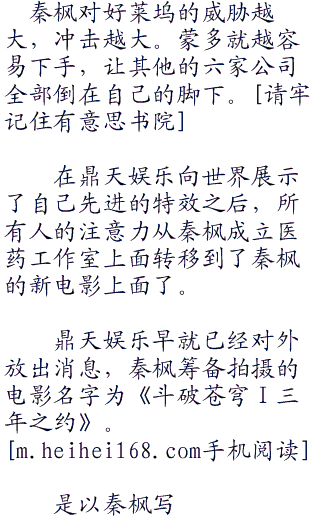 秦枫对好莱坞的威胁越
大，冲击越大。蒙多就越容
易下手，让其他的六家公司
全部倒在自己的脚下。[请牢
记住有意思书院]
在鼎天娱乐向世界展示
了自己先进的特效之后，所
有人的注意力从秦枫成立医
药工作室上面转移到了秦枫
的新电影上面了。
鼎天娱乐早就已经对外
放出消息，秦枫筹备拍摄的
电影名字为《斗破苍穹Ⅰ三
年之约》。
[m.heihei168.com手机阅读]
是以秦枫写